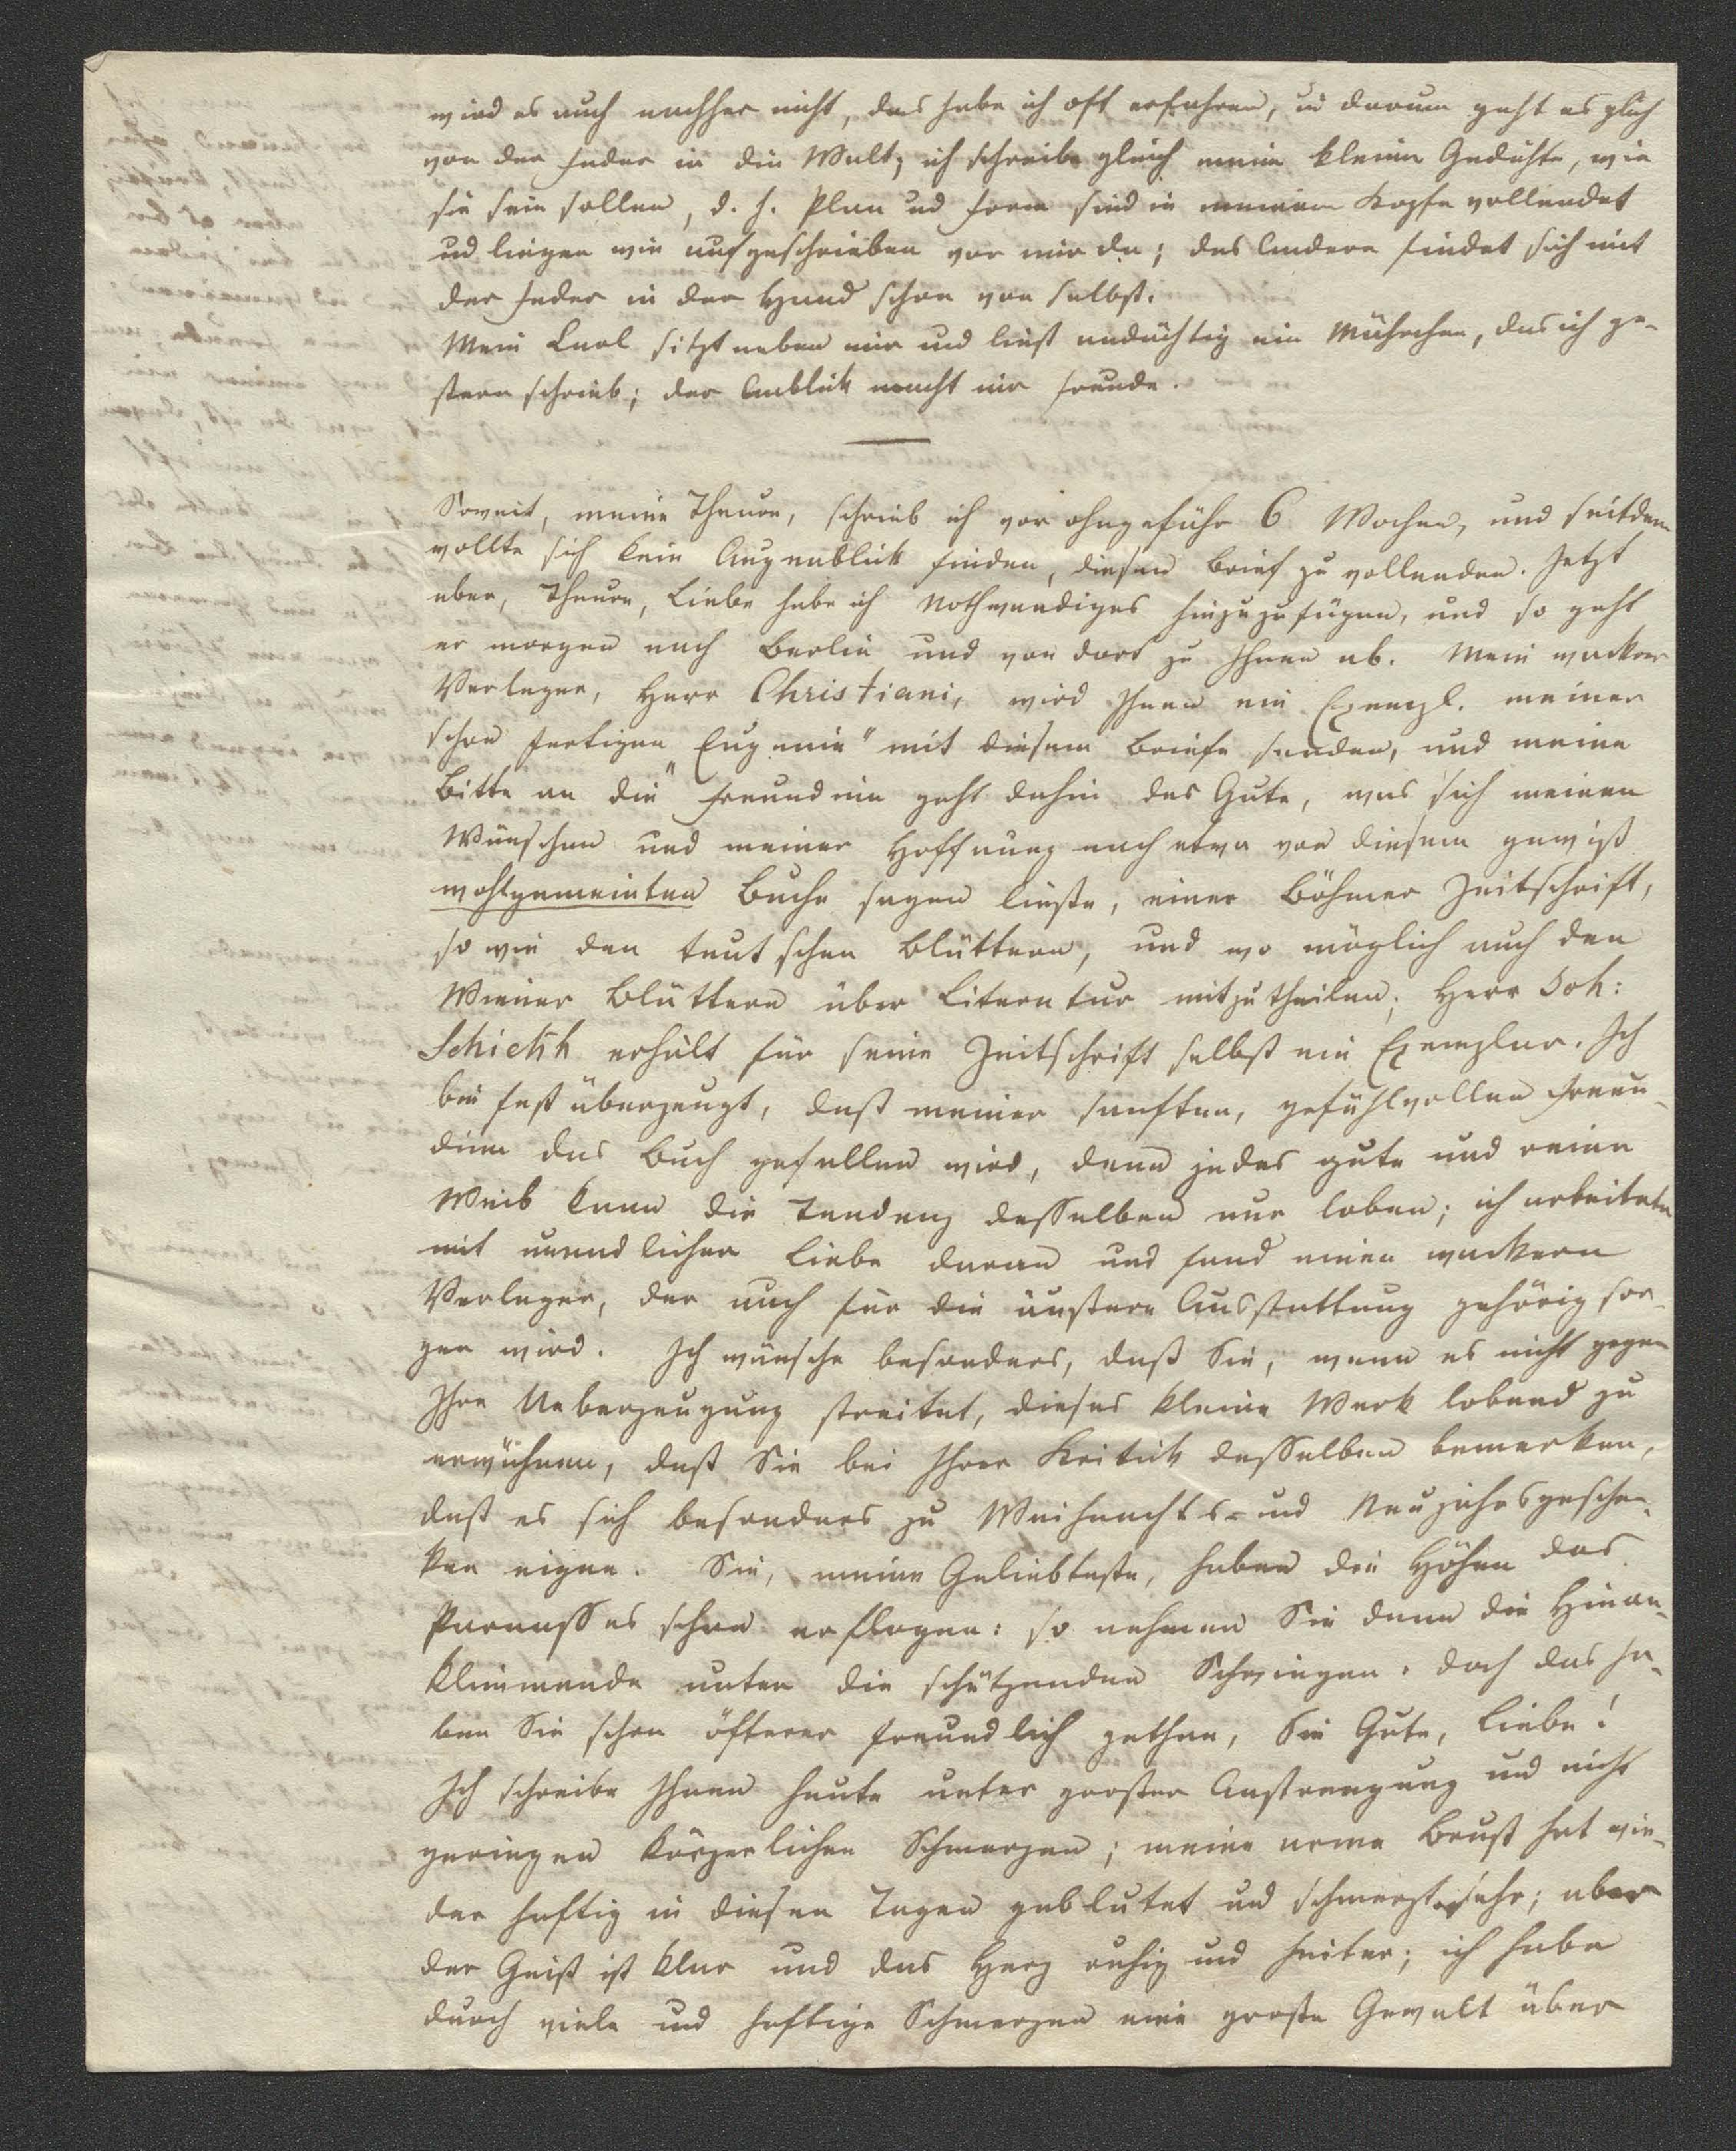 wird es auch nachher nicht, das habe ich oft erfahren, ud darum geht es glich
von der Feder in die Welt; ich schreibe gleich meine kleinen Gedichte, wie
sie sein sollen, d. h. Plan ud Form sind in meinem Kopfe vollendet
ud liegen wie aufgeschrieben vor mir da; das Andere findet sich mit
der Feder in der Hand schon von selbst.
Mein Carl sitzt neben mir und liest andächtig ein Mährchen, das ich ge-
stern schrieb; der Anblick macht mir Freude.
Soweit, meine Theure, schrieb ich vor ohngefähr 6 Wochen, und seitdem
wollte sich kein Augenblick finden, diesen Brief zu vollenden. Jetzt
aber, Theure, Liebe habe ich Nothwendiges hinzuzufügen, und so geht
er morgen nach Berlin und von dort zu Ihnen ab. Mein wackrer
Verleger, Herr Christiani, wird Ihnen ein Exempl. meiner
schon fertigen „Eugenie" mit diesem Briefe senden, und meine
Bitte an die Freundinn geht dahin das Gute, was sich meinen
Wünschen und meiner Hoffnung nach etwa von diesem gewiß
wohlgemeinten Buche sagen ließe, einer Böhmer Zeitschrift,
so wie den teutschen Blättern, und wo möglich auch den
Wiener Blättern über Literatur mitzutheilen; Herr Joh:
Schickh erhält für seine Zeitschrift selbst ein Exemplar. Ich
bin fest überzeugt, daß meiner sanften, gefühlvollen Freun-
dinn das Buch gefallen wird, denn jedes gute und reine
Weib kann die Tendenz desselben nur loben; ich arbeitete
mit unendlicher Liebe daran und fand einen wackern
Verleger, der auch für die äußere Ausstattung gehörig sor-
gen wird. Ich wünsche besonders, daß Sie, wenn es nicht gegen
Ihre Ueberzeugung streitet, dieses kleine Werk lobend zu
erwähnen, daß Sie bei Ihrer Kritick desselben bemerken,
daß es sich besonders zu Weihnachts- und Neujahrsgeschen-
ken eigne. Sie, meine Geliebteste, haben die Höhen des
Parnasses schon erflogen: so nehmen Sie denn die Hinan-
klimmende unter die schützenden Schwingen. doch das ha-
ben Sie schon öfterer freundlich gethan, Sie Gute, Liebe!
Ich schreibe Ihnen heute unter großer Anstrengung und nicht
geringen körperlichen Schmerzen; meine arme Brust hat wie-
der heftig in diesen Tagen geblutet und schmerzt sehr; aber
der Geist ist klar und das Herz ruhig und heiter; ich habe
durch viele und heftige Schmerzen eine große Gewalt über